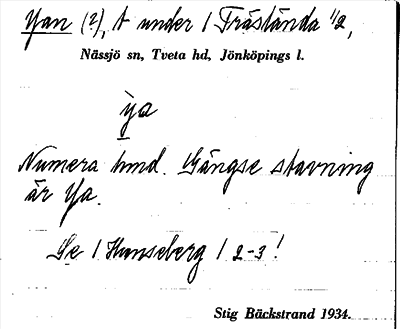 Yan (?), t under 1 Tråstånda 1/2,
Nässjö sn, Tveta hd, Jönköpings l.
ya
Numera tmd. Gängse stavning
är Ya.
Se 1 Hunseberg 1 2-3!
Stig Bäckstrand 1934.